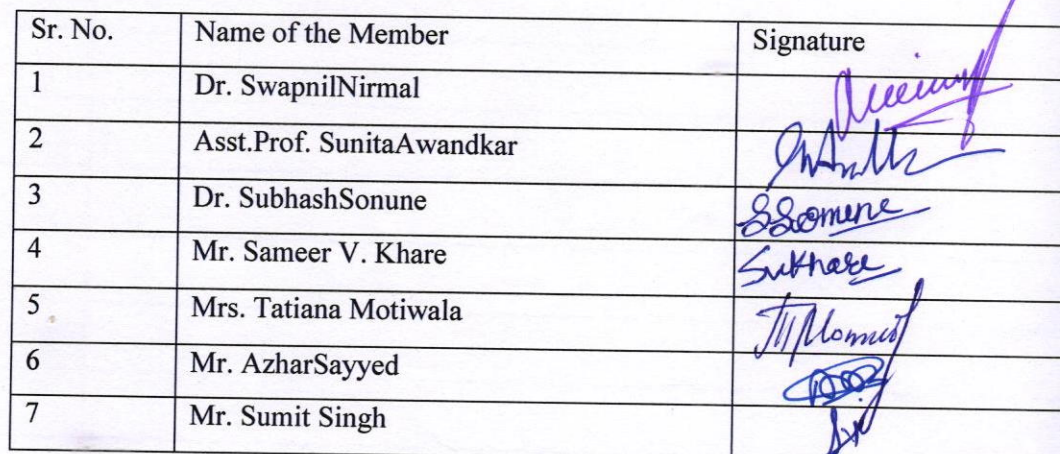 Sr. No. Name of the Member Signature
1 Dr. SwapnilNirmal
2 Asst.Prof. SunitaAwandkar
3 Dr. SubhashSonune SSomene
4 Mr. Sameer V. Khare SvKhare
5 Mrs. Tatiana Motiwala
6 Mr. AzharSayyed
7 Mr. Sumit Singh